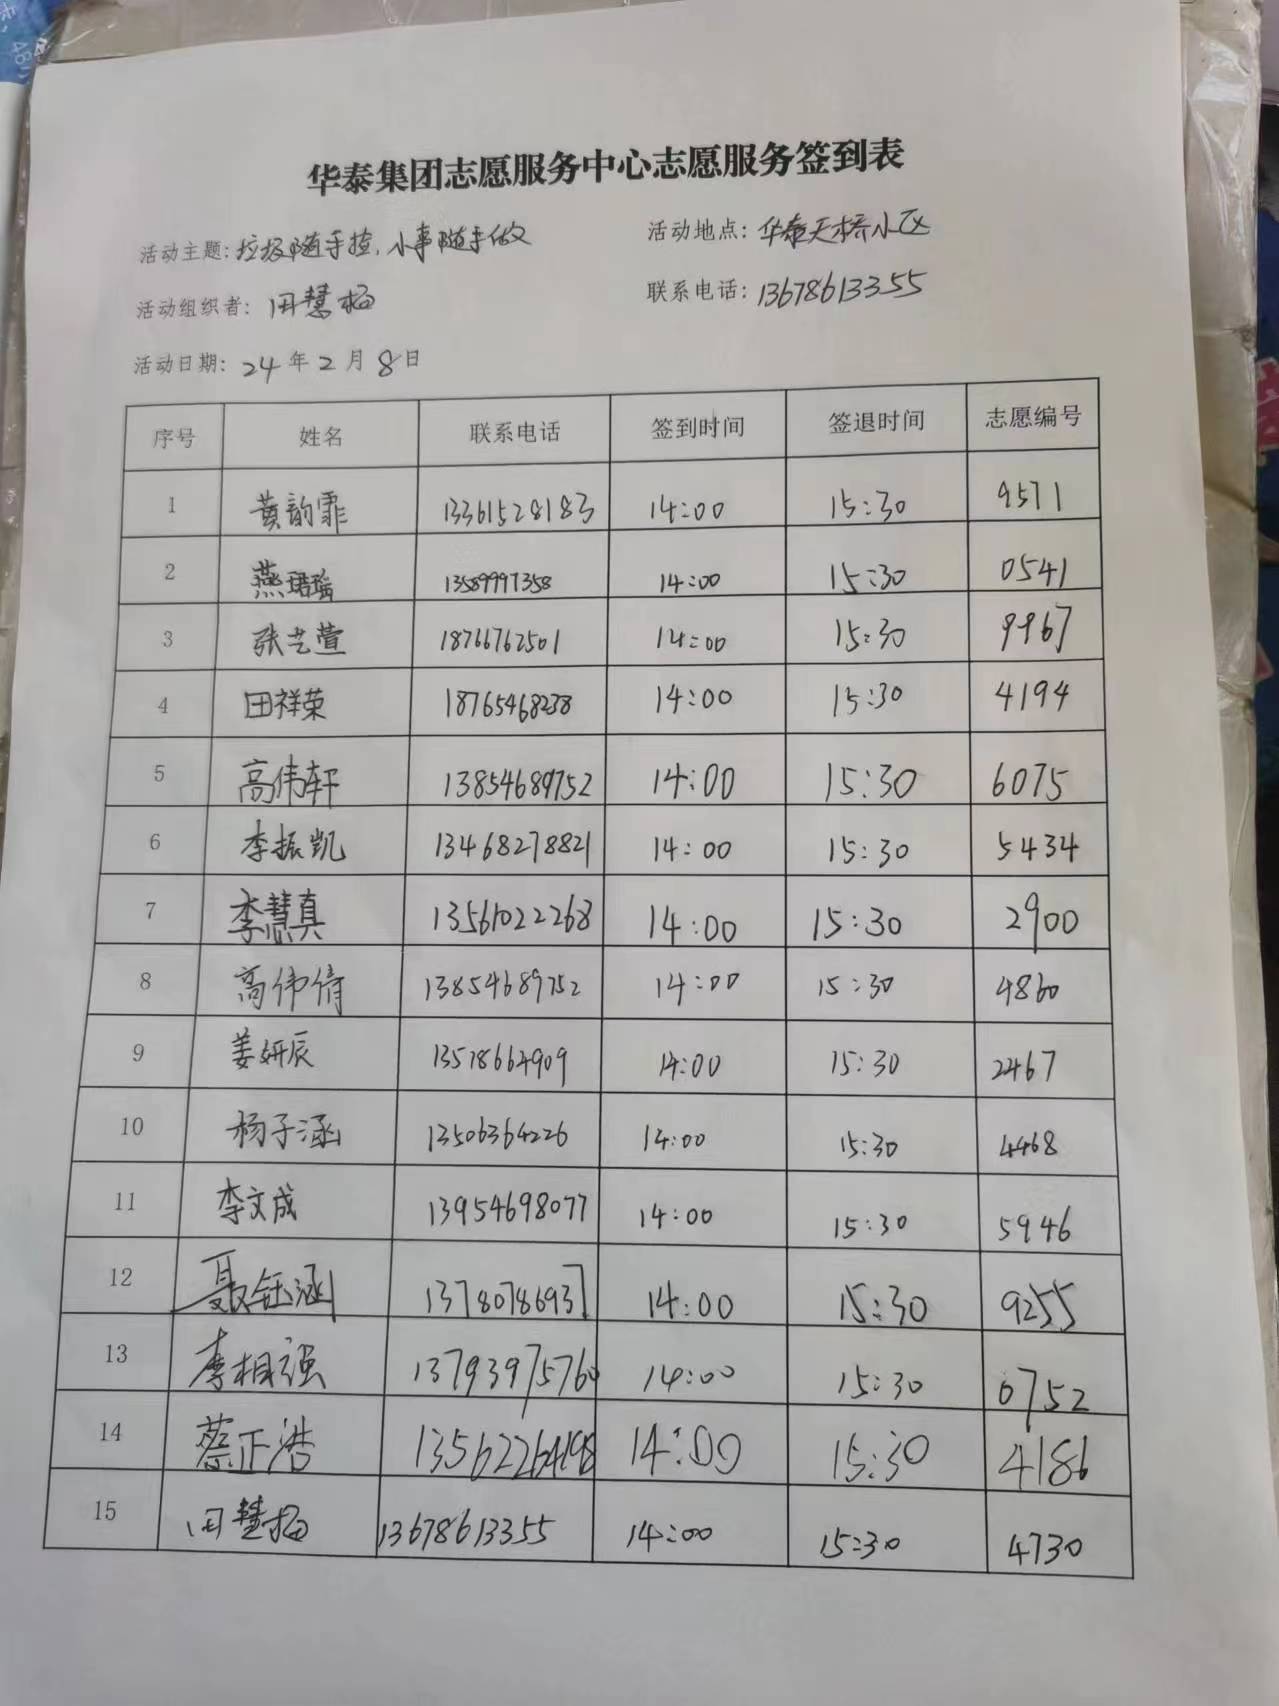 华泰集团志愿服务中心志愿服务签到表
活动主题：垃圾随手捡，小事随手做 活动地点：华泰天桥小区
活动组织者：田慧梅 联系电话：13678613355
活动日期：24年2月8日
序号 姓名 联系电话 签到时间 签退时间 志愿编号
1 黄韵霏 13361528183 14:00 15:30 9571
2 燕珺瑶 13589997358 14:00 15:30 0541
3 张艺萱 18766762501 14:00 15:30 9967
4 田祥荣 18765468238 14:00 15:30 4194
5 高伟轩 13854689752 14:00 15:30 6075
6 李振凯 13468278821 14:00 15:30 5434
7 李慧真 13561022268 14:00 15:30 2900
8 高伟倩 13854689752 14:00 15:30 4860
9 姜妍辰 13518664909 14:00 15:30 2467
10 杨子涵 13506364226 14:00 15:30 4468
11 李文成 13954698077 14:00 15:30 5946
12 聂钰涵 13780786937 14:00 15:30 9255
13 李相强 13793975760 14:00 15:30 6752
14 蔡正浩 13562264198 14:00 15:30 4186
15 田慧梅 13678613355 14:00 15:30 4730